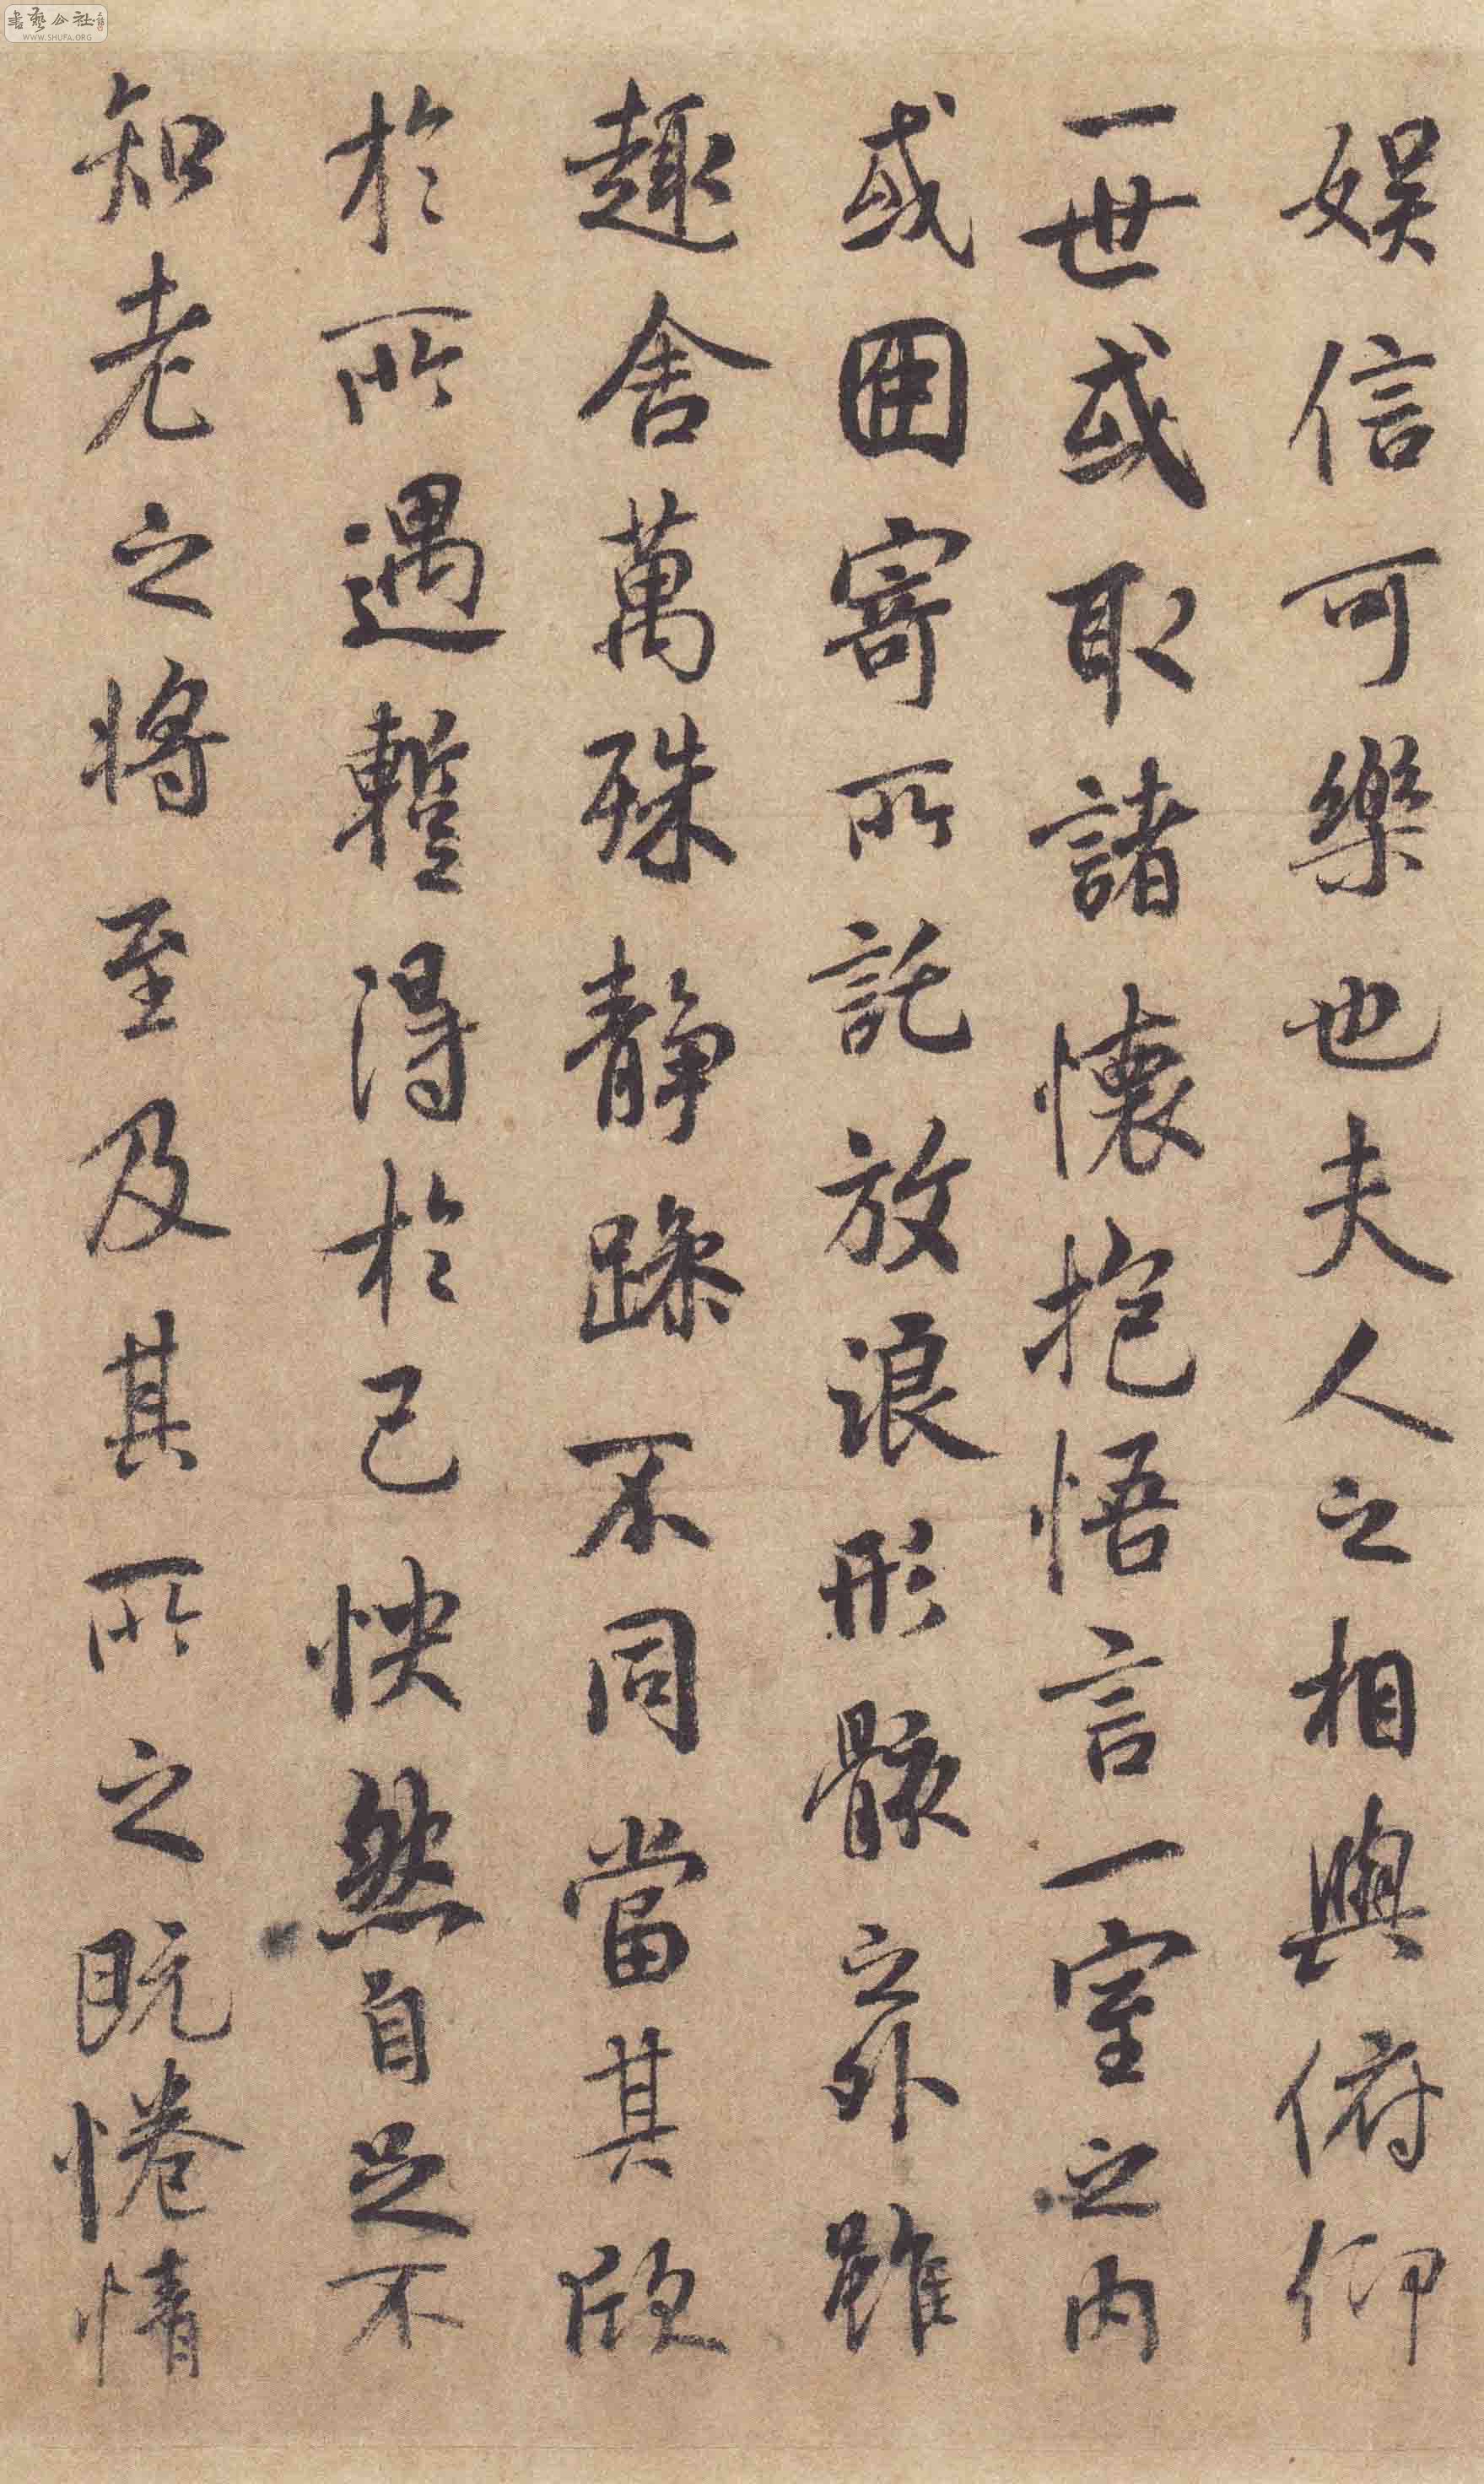 書藝公社
WWW.SHUFA.ORG
娱信可樂也夫人之相與俯仰
一世或取諸懷抱悟言一室之内
或因寄所託放浪形骸之外雖
趣舍萬殊静躁不同當其欣
於所遇蹔得於己怏然自足不
知老之將至及其所之既惓情